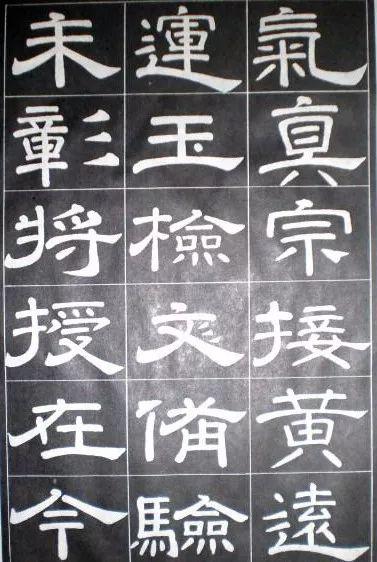 氣真宗接黄遠
運玉檢文備驗
未彰將授在今